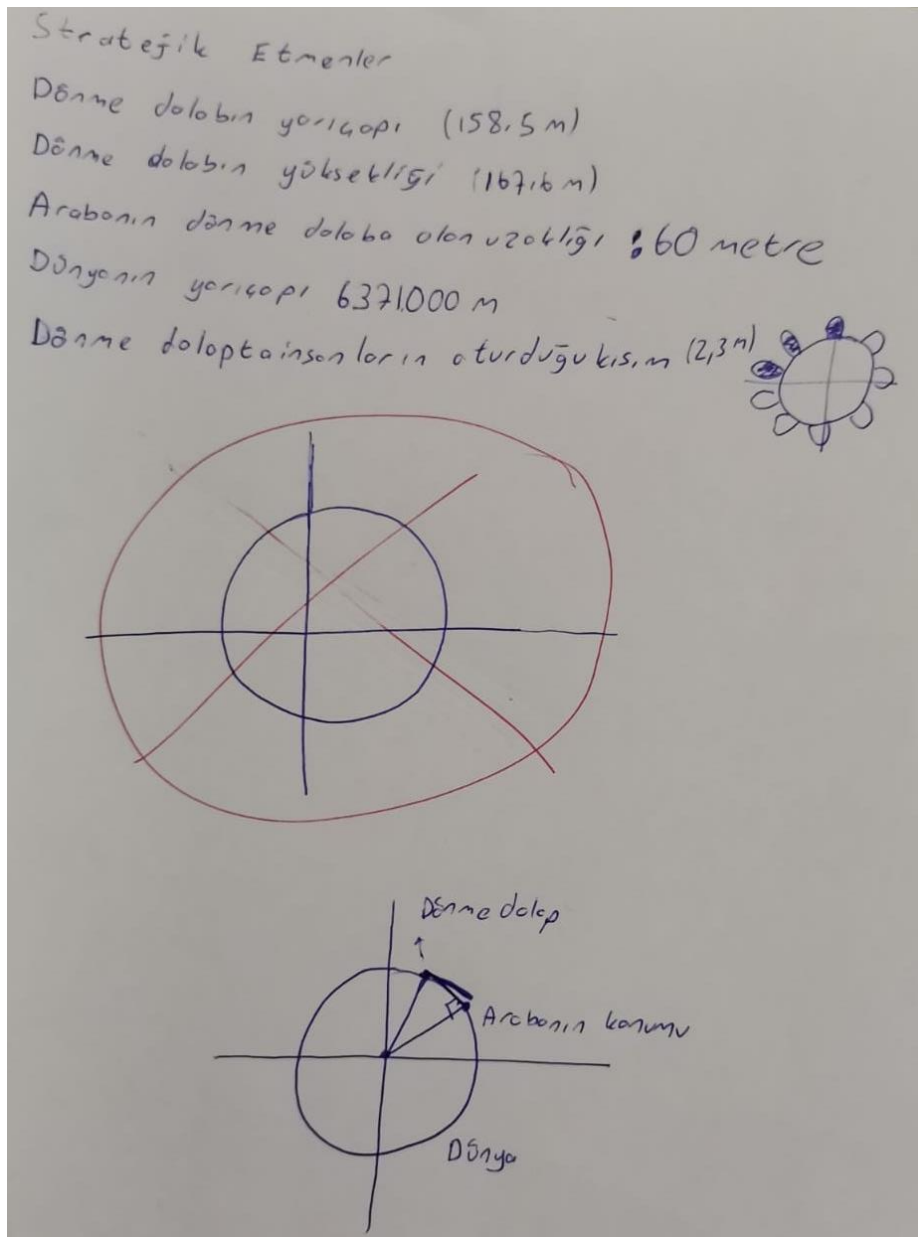 Stratejik Etmenler
Dönme dolabın yarıçapı (158,5 m)
Dönme dolabın yüksekliği (167,6 m)
Arabanın dönme dolaba olan uzaklığı : 60 metre
Dünyanın yarıçapı 6371.000 m
Dönme dolapta insanların oturduğu kısım (2,3 m)
Dönme dolap
Arabanın konumu
Dünya